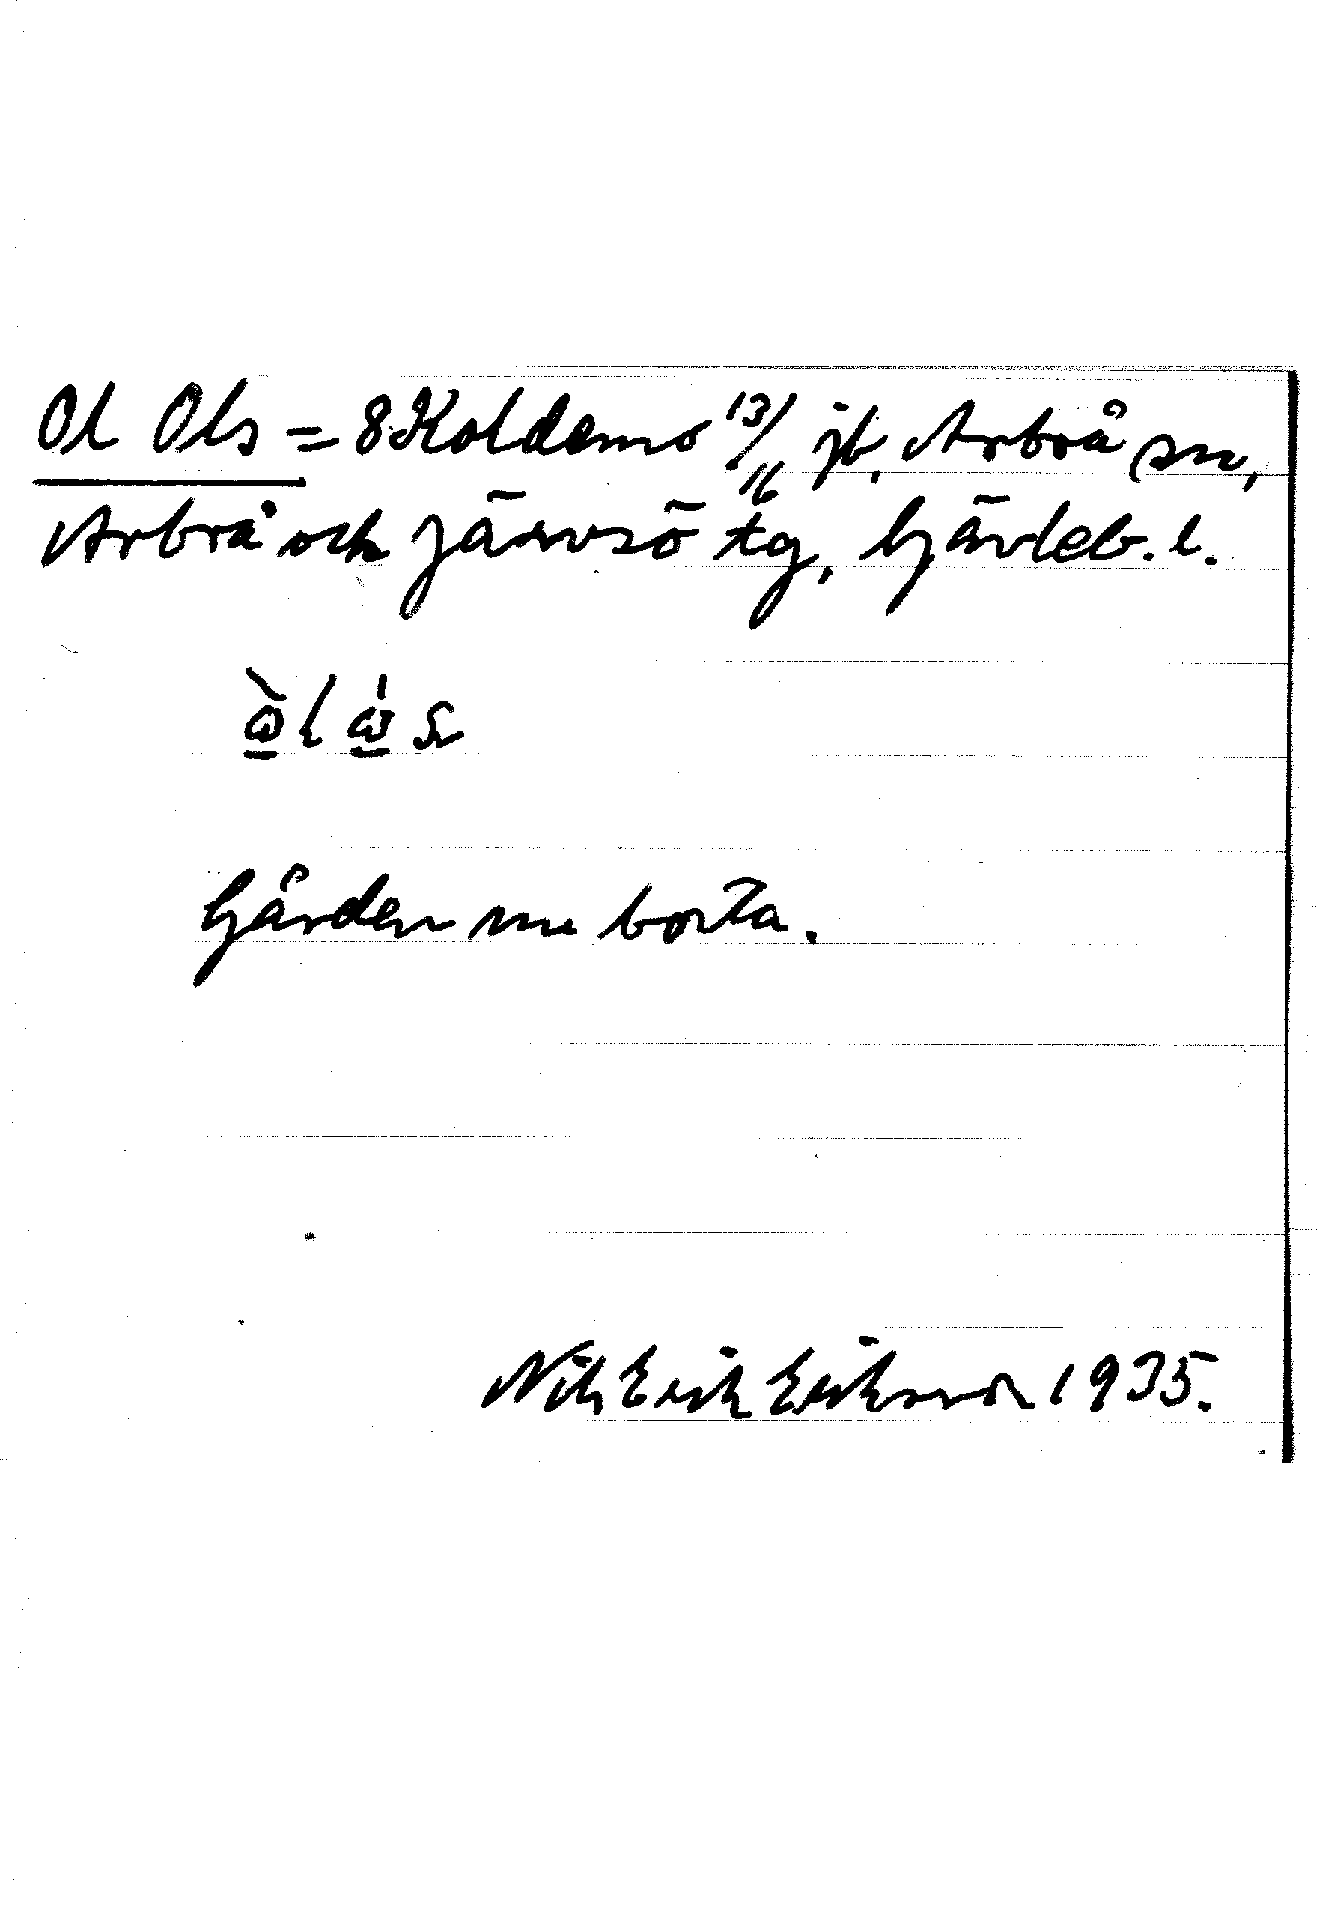 Ol Ols = 8 Koldemo 13/16 jb, Arbrå sn,
Arbrå och Järvsö tg, Gävleb. l.
ὼ̲lώ̲s
Gården nu borta.
Nils Erik Eriksson 1935.